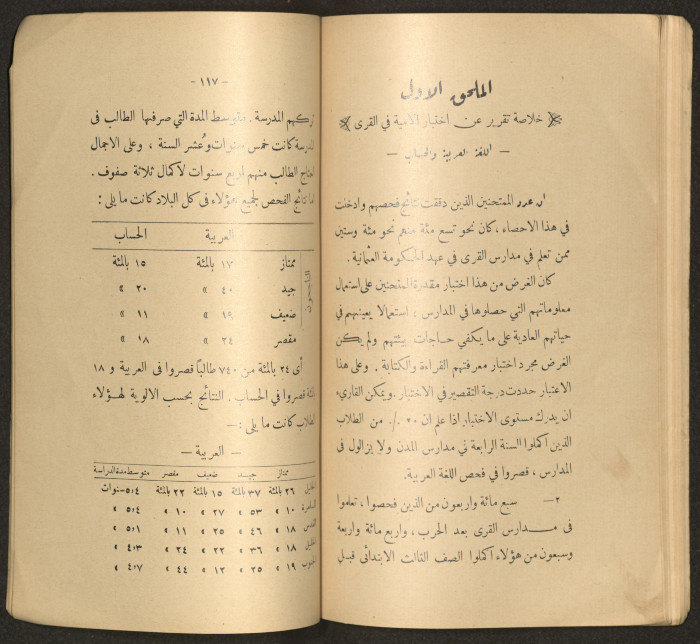 الملحق الاول
خلاصة تقرير عن اختبار الامية في القرى
— اللغة العربية والحساب —
ان عدد الممتحنين الذين دققت نتائج فحصهم وادخلت
في هذا الاحصاء ، كان نحو تسع مئة منهم نحو مئة وستين
ممن تعلم في مدارس القرى في عهد الحكومة العثمانية .
كان الغرض من هذا اختبار مقدرة الممتحنين على استعمال
معلوماتهم التي حصلوها في المدارس : استعمالا يعينهم في
حياتهم العادية على ما يكفي حاجات بيئتهم ولم يكن
الغرض مجرد اختبار معرفتهم القراءة والكتابة . وعلى هذا
الاعتبار حددت درجة التقصير في الاختبار . ويمكن القارىء
ان يدرك مستوى الاختبار اذا علم ان ./٠ من الطلاب
الذين اكملوا السنة الرابعة في مدارس المدن ولا يزالول في
المدارس ، قصروا في فحص اللغة العربية .
٢— سبع مائة واربعون من الذين فحصوا ، تعلموا
فى مدارس القرى بعد الحرب ، واربع مائة واربعة
وسبعون من هؤلاء اكملوا الصف الثالث الابتدائى قبل
- ١١٧ -
تركهم المدرسة . متوسط المدة التي صرفها الطالب فى
المدرسة كانت خمس سنوات وعُشر السنة ، وعلى الاجمال
احتاج الطالب منهم اربع سنوات لاكمال ثلاثة صفوف .
اما نتائج الفحص لجميع هؤلاء فى كل البلاد كانت ما يلى :
العربية الحساب
الناجحون
ممتاز ١٧ بالمئة ١٥ بالمئة
جيد ٤٠ » ٢٠ »
ضعيف ١٩ » ١١ »
مقصر ٢٤ » ١٨ »
أى ٢٤ بالمئة من ٧٤٠ طالباً قصروا فى العربية و ١٨
بالمئة قصروا في الحساب . النتائج بحسب الالوية لهؤلاء
الطلاب كانت ما يلى : —
— العربية —
ممتاز جيد ضعيف مقصر متوسط مدة الدراسة
٢٦ بالمئة ٣٧ بالمئة ١٥ بالمئة ٢٢ بالمئة ٥،٤ سنوات
السامرة ١٠ » ٥٣ » ٢٧ » ١٠ » ٥،٤ »
القدس ١٨ » ٤٦ » ٢٥ » ١١ » ٥،١ »
الخليل ١٨ » ٣٦ » ٢٢ » ٢٤ » ٤،٣ »
الجنوب ١٩ » ٢٥ » ١٢ » ٤٤ » ٤،٧ »